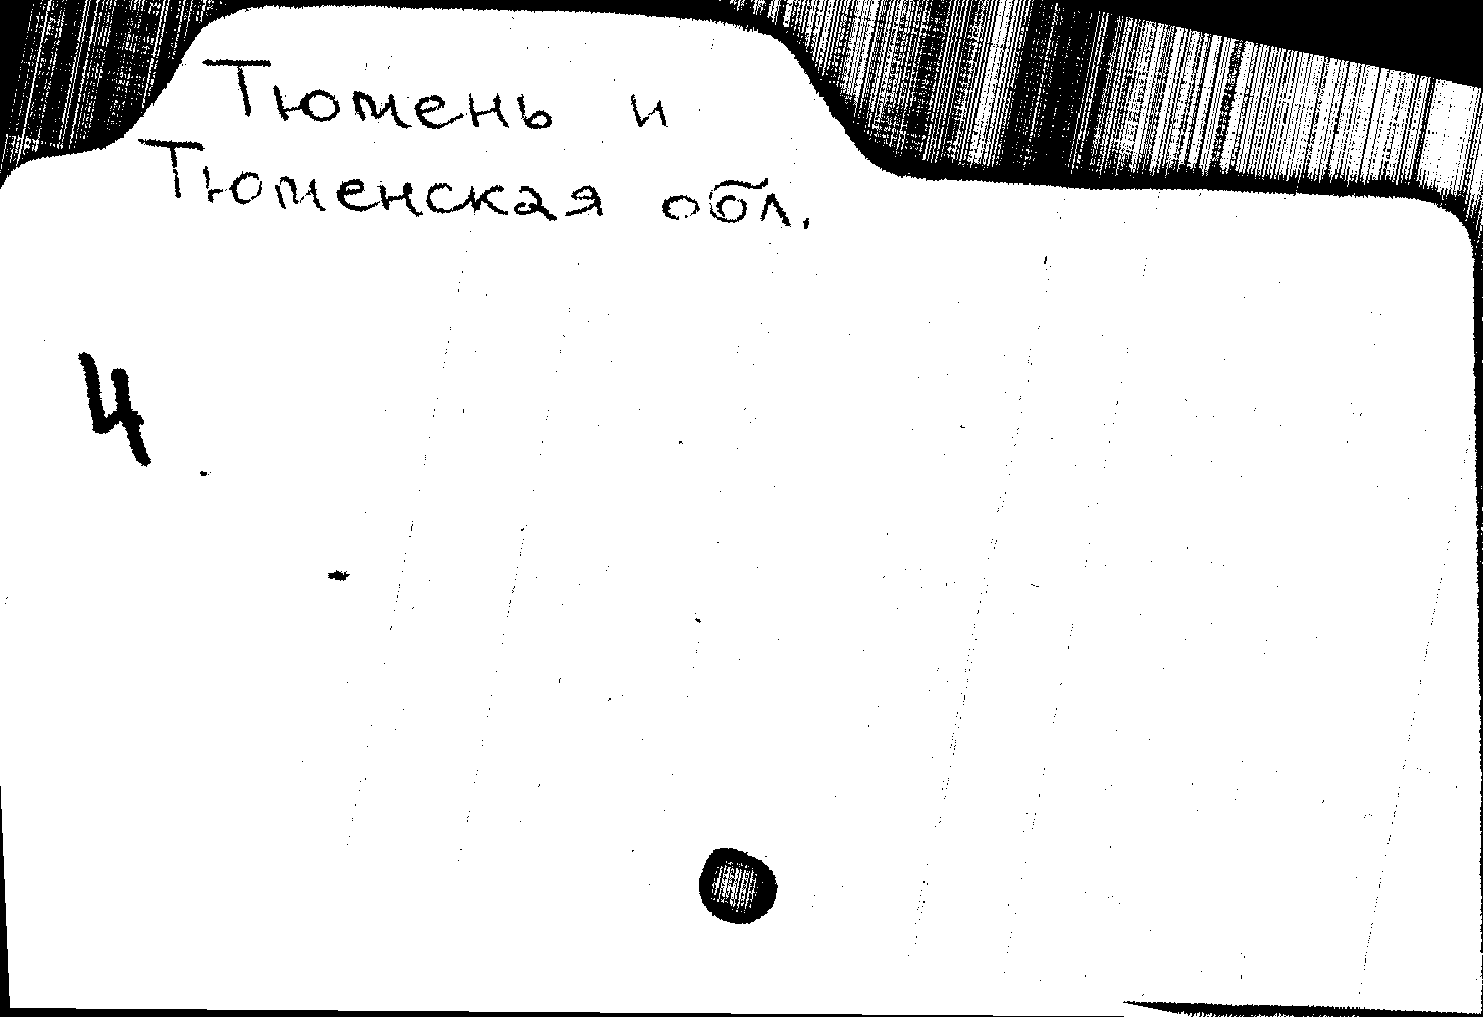 Тюмень и
Тюменская обл.
4